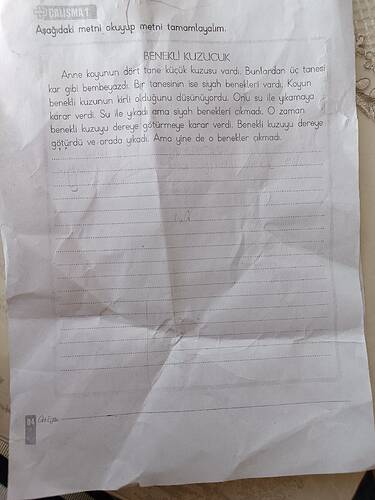 ÇALIŞMA 1
Aşağıdaki metni okuyup metni tamamlayalım.
BENEKLİ KUZUCUK
Anne koyunun dört tane küçük kuzusu vardı. Bunlardan üç tanesi
kar gibi bembeyazdı. Bir tanesinin ise siyah benekleri vardı. Koyun
benekli kuzunun kirli olduğunu düşünüyordu. Onu su ile yıkamaya
karar verdi. Su ile yıkadı ama siyah benekleri çıkmadı. O zaman
benekli kuzuyu dereye götürmeye karar verdi. Benekli kuzuyu dereye
götürdü ve orada yıkadı. Ama yine de o benekler çıkmadı.
94